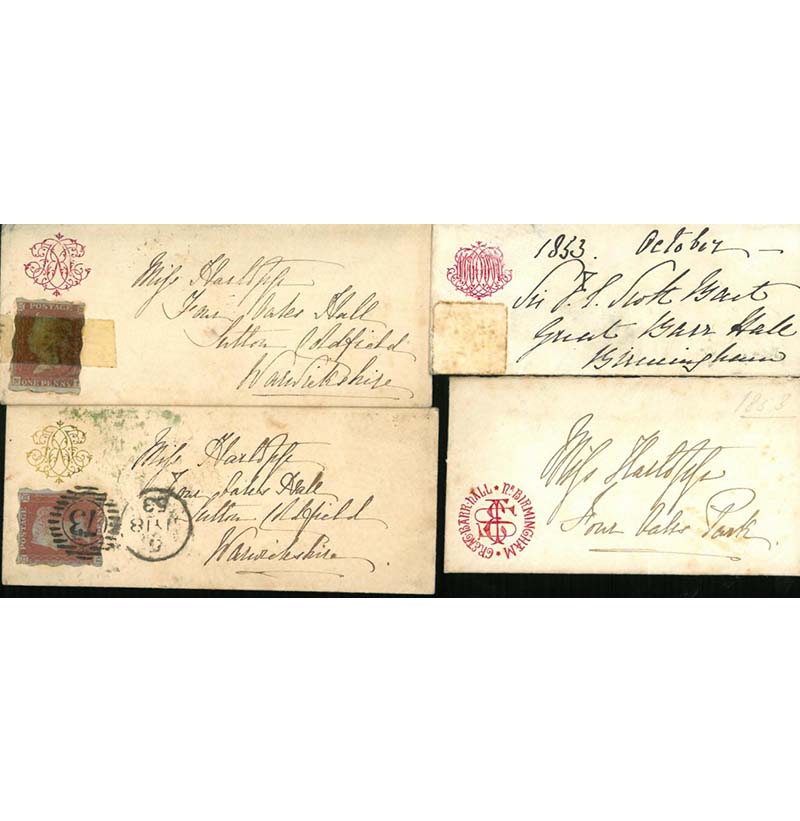 POSTAGE
ONE PENNY
Miss Hartopp
Four Oaks Hall
Sutton Coldfield
Warwickshire
1853. October
Sir F. S. Scott Bart
Great Barr Hall
Birmingham
POSTAGE
73
JY 18
53
Miss Hartopp
Four Oaks Hall
Sutton Coldfield
Warwickshire.
1853
GREAT BARR HALL • Nr BIRMINGHAM •
Miss Hartopp
Four Oaks Park.